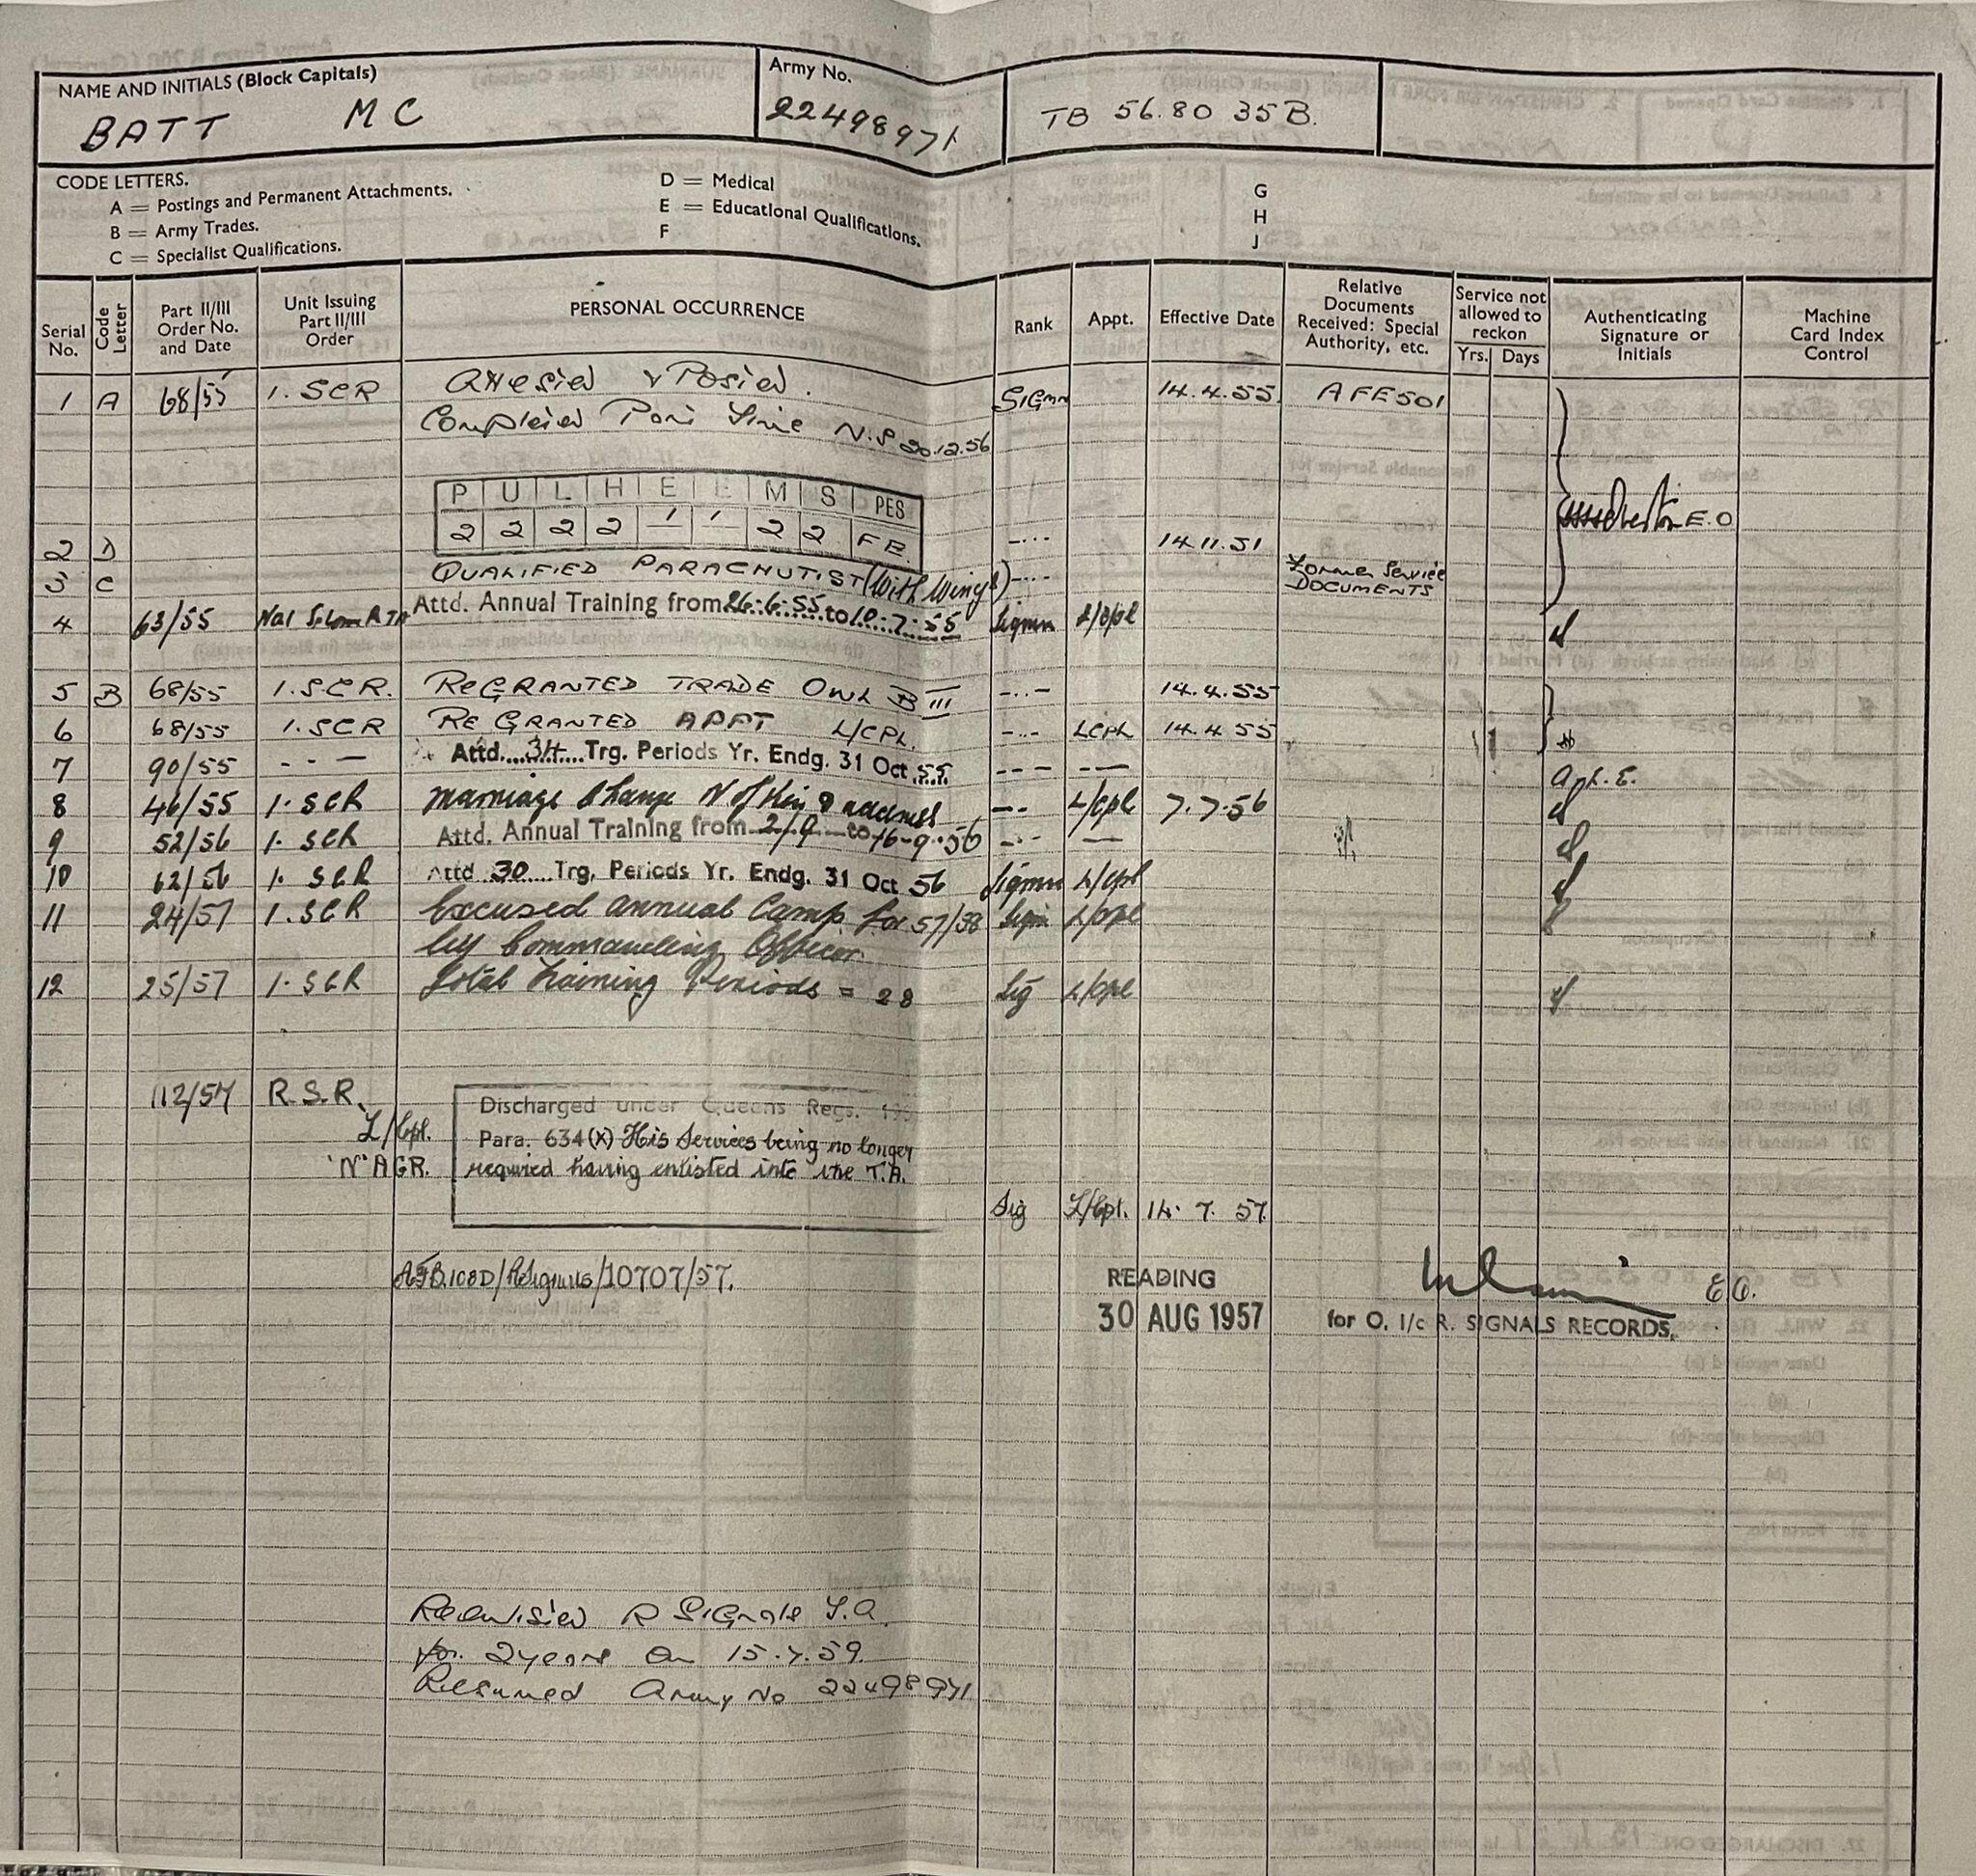 NAME AND INITIALS (Block Capitals)
BATT MC
Army No.
22498971
TB 56.80 35B.
CODE LETTERS.
A = Postings and Permanent Attachments.
B = Army Trades.
C = Specialist Qualifications.
D = Medical
E = Educational Qualifications.
F
G
H
J
Serial No.
Code Letter
Part II/III Order No. and Date
Unit Issuing Part II/III Order
PERSONAL OCCURRENCE
Rank
Appt.
Effective Date
Relative Documents Received: Special Authority, etc.
Service not allowed to reckon
Yrs. Days
Authenticating Signature or Initials
Machine Card Index Control
1 A 68/55 1.SCR Attested & Posted. SIGmn 14.4.55 AFE501
Completed Part Time N.S 20.12.56
P U L H E E M S PES
2 2 2 2 1 1 2 2 FE
2 D -..- 14.11.51
E.O
3 C QUALIFIED PARACHUTIST (With Wings) -..- Former Service DOCUMENTS
4 63/55 Attd. Annual Training from 26.6.55 to 10.7.55 Sigmn L/Cpl
5 B 68/55 1.SCR. REGRANTED TRADE OWL B III -..- 14.4.55
6 68/55 1.SCR REGRANTED APPT L/CPL. -..- LCPL 14.4.55
7 90/55 - - - Attd. 34 Trg. Periods Yr. Endg. 31 Oct 55 - - - - -
8 46/55 1.SCR Marriage Change N of Kin & address -- L/Cpl 7.7.56
9 52/56 1.SCR Attd. Annual Training from 2/9 to 16-9-56 -.- —
10 62/56 1.SCR Attd 30 Trg. Periods Yr. Endg. 31 Oct 56 Sigmn L/Cpl
11 24/57 1.SCR Excused annual Camp for 57/58 Sigm L/Cpl
by Commanding Officer
12 25/57 1.SCR Total Training Periods = 28 Sig L/Cpl
112/57 R.S.R. Discharged under Queens Regs.
L/Cpl. Para. 634(X) His Services being no longer
'N' AGR. required having enlisted into the T.A.
Sig L/Cpl. 14. 7. 57.
10707/57.
READING
30 AUG 1957
E.O.
for O. I/c R. SIGNALS RECORDS.
R Signals T.A
for 2 years on 15.7.59.
Resumed Army No 22498971